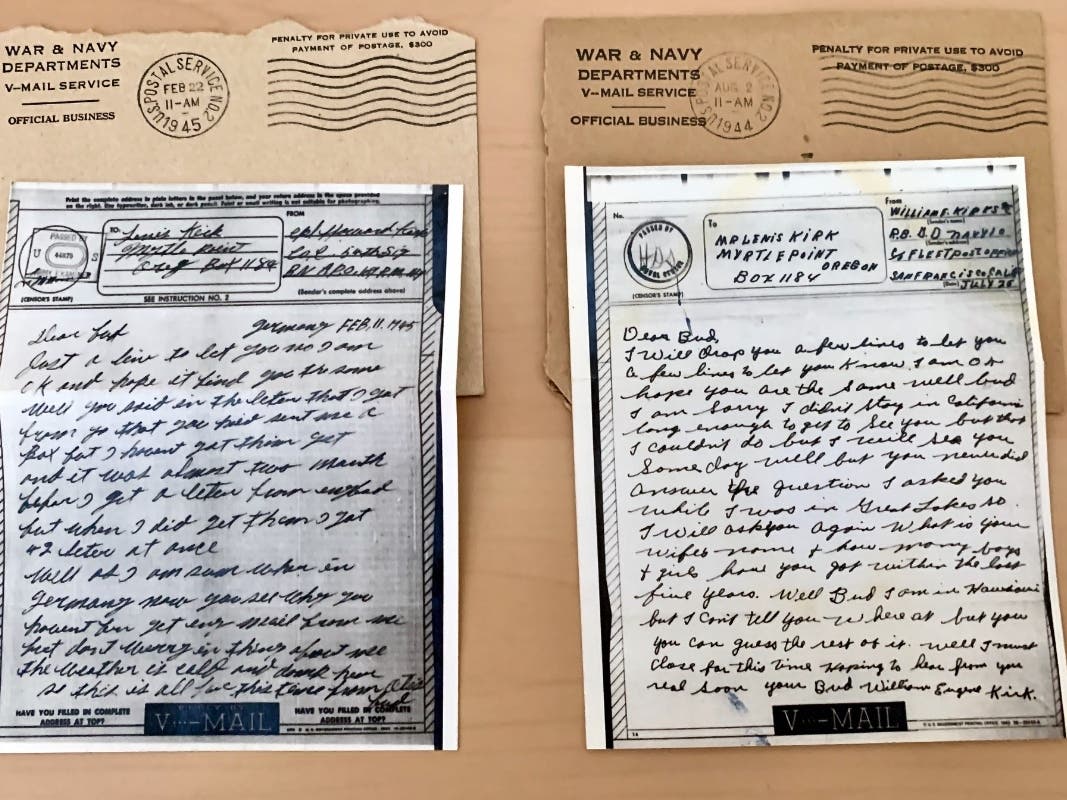 WAR & NAVY
DEPARTMENTS
V--MAIL SERVICE
OFFICIAL BUSINESS
U.S. POSTAL SERVICE NO.2
FEB 22
11-AM
1945
PENALTY FOR PRIVATE USE TO AVOID
PAYMENT OF POSTAGE, $300
Print the complete address in plain letters in the panel below, and your return address in the space provided
on the right. Use typewriter, dark ink, or dark pencil. Faint or small writing is not suitable for photographing.
TO:
Lenis Kirk
Myrtle point
Oreg Box 1184
FROM
PASSED BY
U S
(CENSOR'S STAMP)
SEE INSTRUCTION NO. 2
(Sender's complete address above)
Germany FEB, 11, 1945
Dear bud
Just a line to let you no I am
OK and hope it find you the same
Well you said in the leter that I got
from yo that you had sent me a
Box but I havent got them yet
and it was almost two month
befor I got a leter from
but when I did get them I got
42 leter at once
Well as I am som when in
Germany now you see why you
havent ben get eny mail from me
but dont Worry in thing about me
the Weather is cold and damp her
so this is all for this time from
HAVE YOU FILLED IN COMPLETE
ADDRESS AT TOP?
V···-MAIL
HAVE YOU FILLED IN COMPLETE
ADDRESS AT TOP?
WAR & NAVY
DEPARTMENTS
V--MAIL SERVICE
OFFICIAL BUSINESS
U.S. POSTAL SERVICE NO.2
AUG 2
11-AM
1944
PENALTY FOR PRIVATE USE TO AVOID
PAYMENT OF POSTAGE, $300
No.
PASSED BY
NAVAL CENSOR
(CENSOR'S STAMP)
To
MR LENIS KIRK
MYRTLE POINT
OREGON
BOX 1184
From
WILLIAM E. KIRK
(Sender's name)
NAVY 10
(Sender's address)
℅ FLEET POST OFFICE
SAN FRANCISCO CALIF
(Date) JULY 28
Dear Bud,
I Will Drop you a few lines to let you
a few lines to let you Know I am OK
hope you are the same well bud
I am Sorry I didn't Stay in California
long enough to get to See you but that
I couldn't do but I will see you
Some day well but you never did
answer the question I asked you
while I was in Great Lakes so
I will ask you again What is your
wifes name & how many boys
& girls have you got within the last
five years. Well Bud I am in Hawiani
but I Cant tell you where at but you
you can guess the rest of it. well I must
Close for this time hoping to hear from you
real soon your Bud William Eugene Kirk.
HAVE YOU FILLED IN COMPLETE
ADDRESS AT TOP?
V···-MAIL